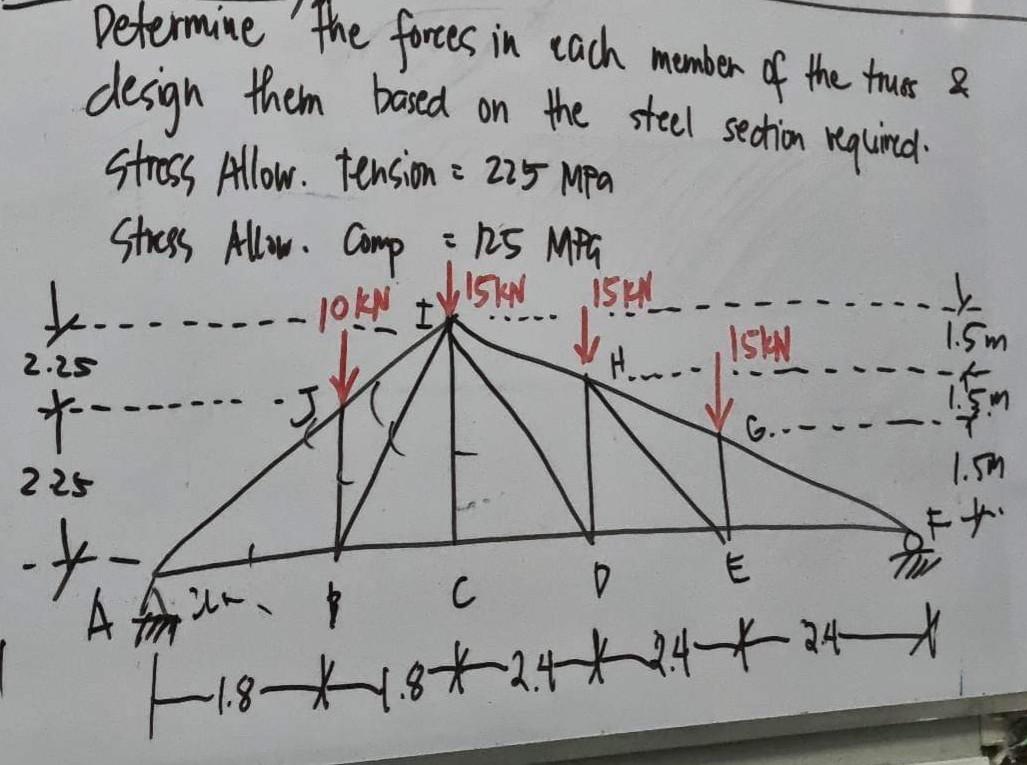 Determine the forces in each member of the truss &
design them based on the steel section required.
Stress Allow. tension = 225 MPa
Stress Allow. Comp = 125 MPa
10 kN I 15 kN 15 kN
2.25 15 kN 1.5 m
J H 1.5 m
G
2.25 1.5 m
F
A B C D E
1.8 1.8 2.4 2.4 2.4